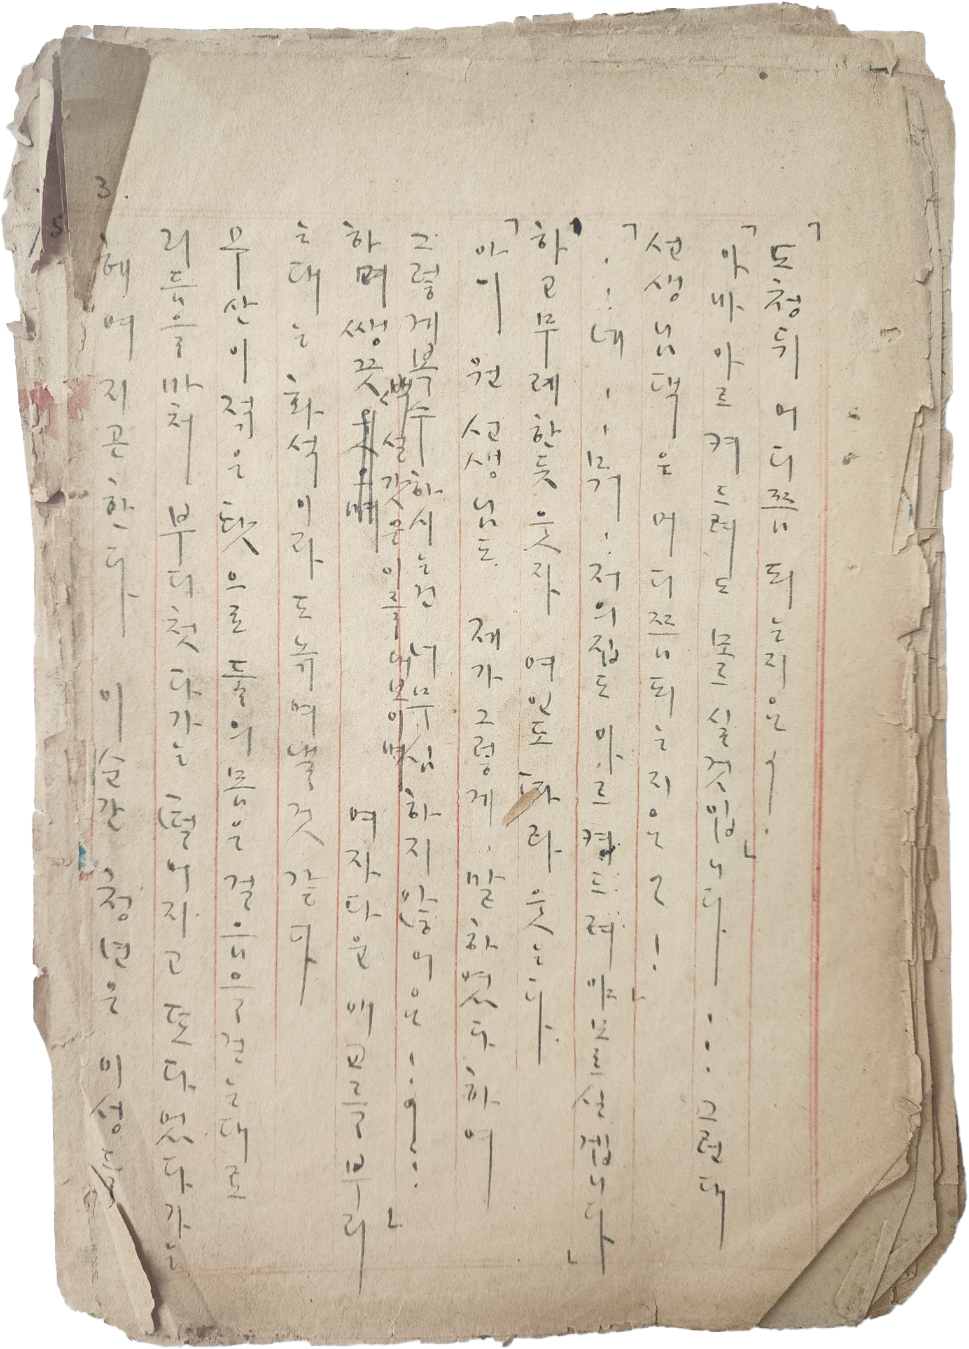 「도청뒤 어디쯤 되는지운!」
「아바아르켜드려도 모르실것입니다!... 그런대
선생님댁은 어디쯤되는지운?!
「..네.., 뭐.저의집도 아르켜드려야모르실겝니다」
하고무례한듯 웃자 여인도 따라 웃는다.
「아이 원 선생님도. 제가그렇게.말하였다하여
그렇게복수하시는건 너무심하지않어운!...」
하며 쌩끗 백설갓은이를내보이며 여자다운 애교를부리
는대는 화석이라도녹여낼것 같다
무산이 적은 탓으로 둘의몸은 걸음을걷는대로
리듬을마처 부디첫다가는 떨어지고 또다었다가는
헤여지곤한다 이순간 청년은 이성을
3.